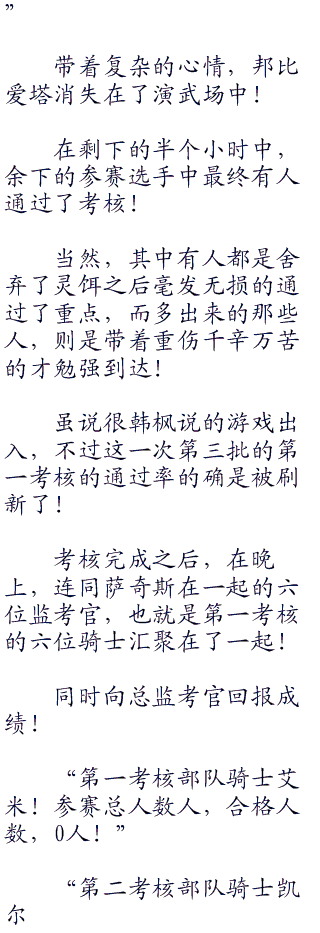 ”
带着复杂的心情，邦比
爱塔消失在了演武场中！
在剩下的半个小时中，
余下的参赛选手中最终有人
通过了考核！
当然，其中有人都是舍
弃了灵饵之后毫发无损的通
过了重点，而多出来的那些
人，则是带着重伤千辛万苦
的才勉强到达！
虽说很韩枫说的游戏出
入，不过这一次第三批的第
一考核的通过率的确是被刷
新了！
考核完成之后，在晚
上，连同萨奇斯在一起的六
位监考官，也就是第一考核
的六位骑士汇聚在了一起！
同时向总监考官回报成
绩！
“第一考核部队骑士艾
米！参赛总人数人，合格人
数，0人！”
“第二考核部队骑士凯
尔